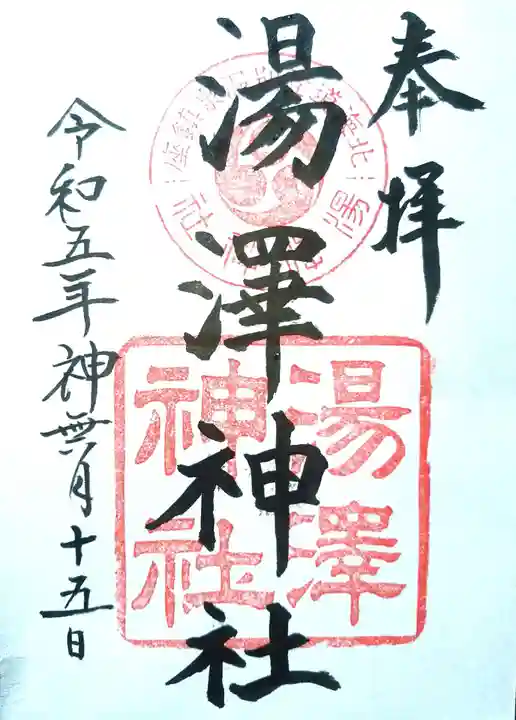 奉拝
湯澤神社
湯澤
神社
令和五年神無月十五日